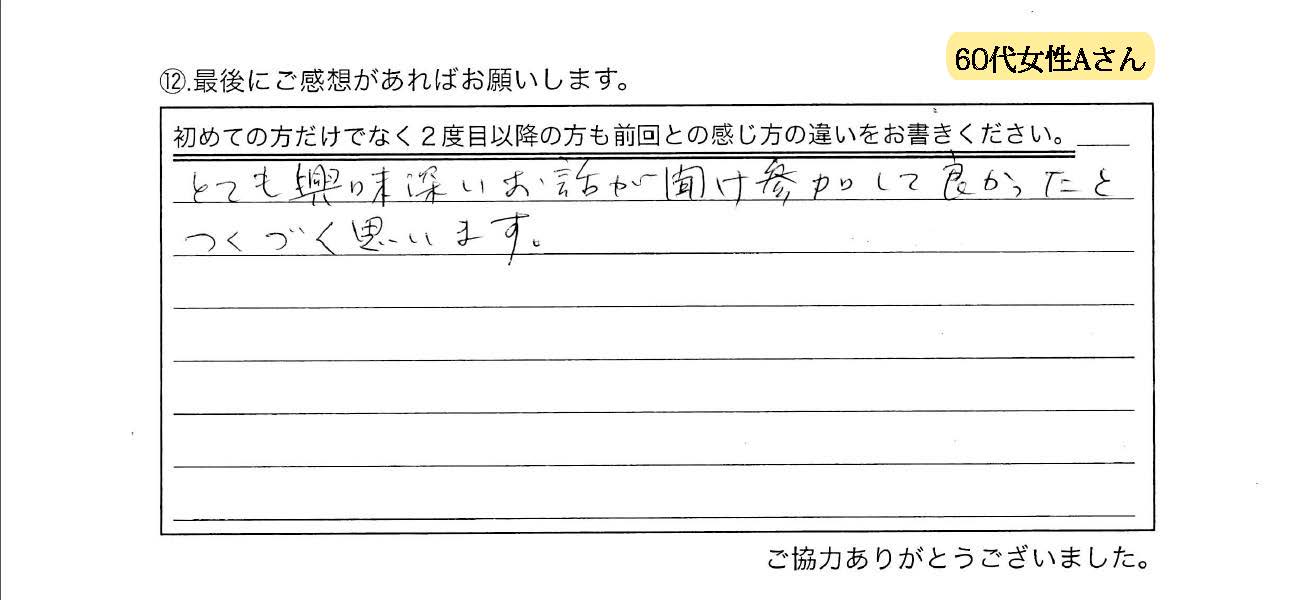 60代女性Aさん
⑫.最後にご感想があればお願いします。
初めての方だけでなく２度目以降の方も前回との感じ方の違いをお書きください。
とても興味深いお話が聞け参加して良かったと
つくづく思います。
ご協力ありがとうございました。